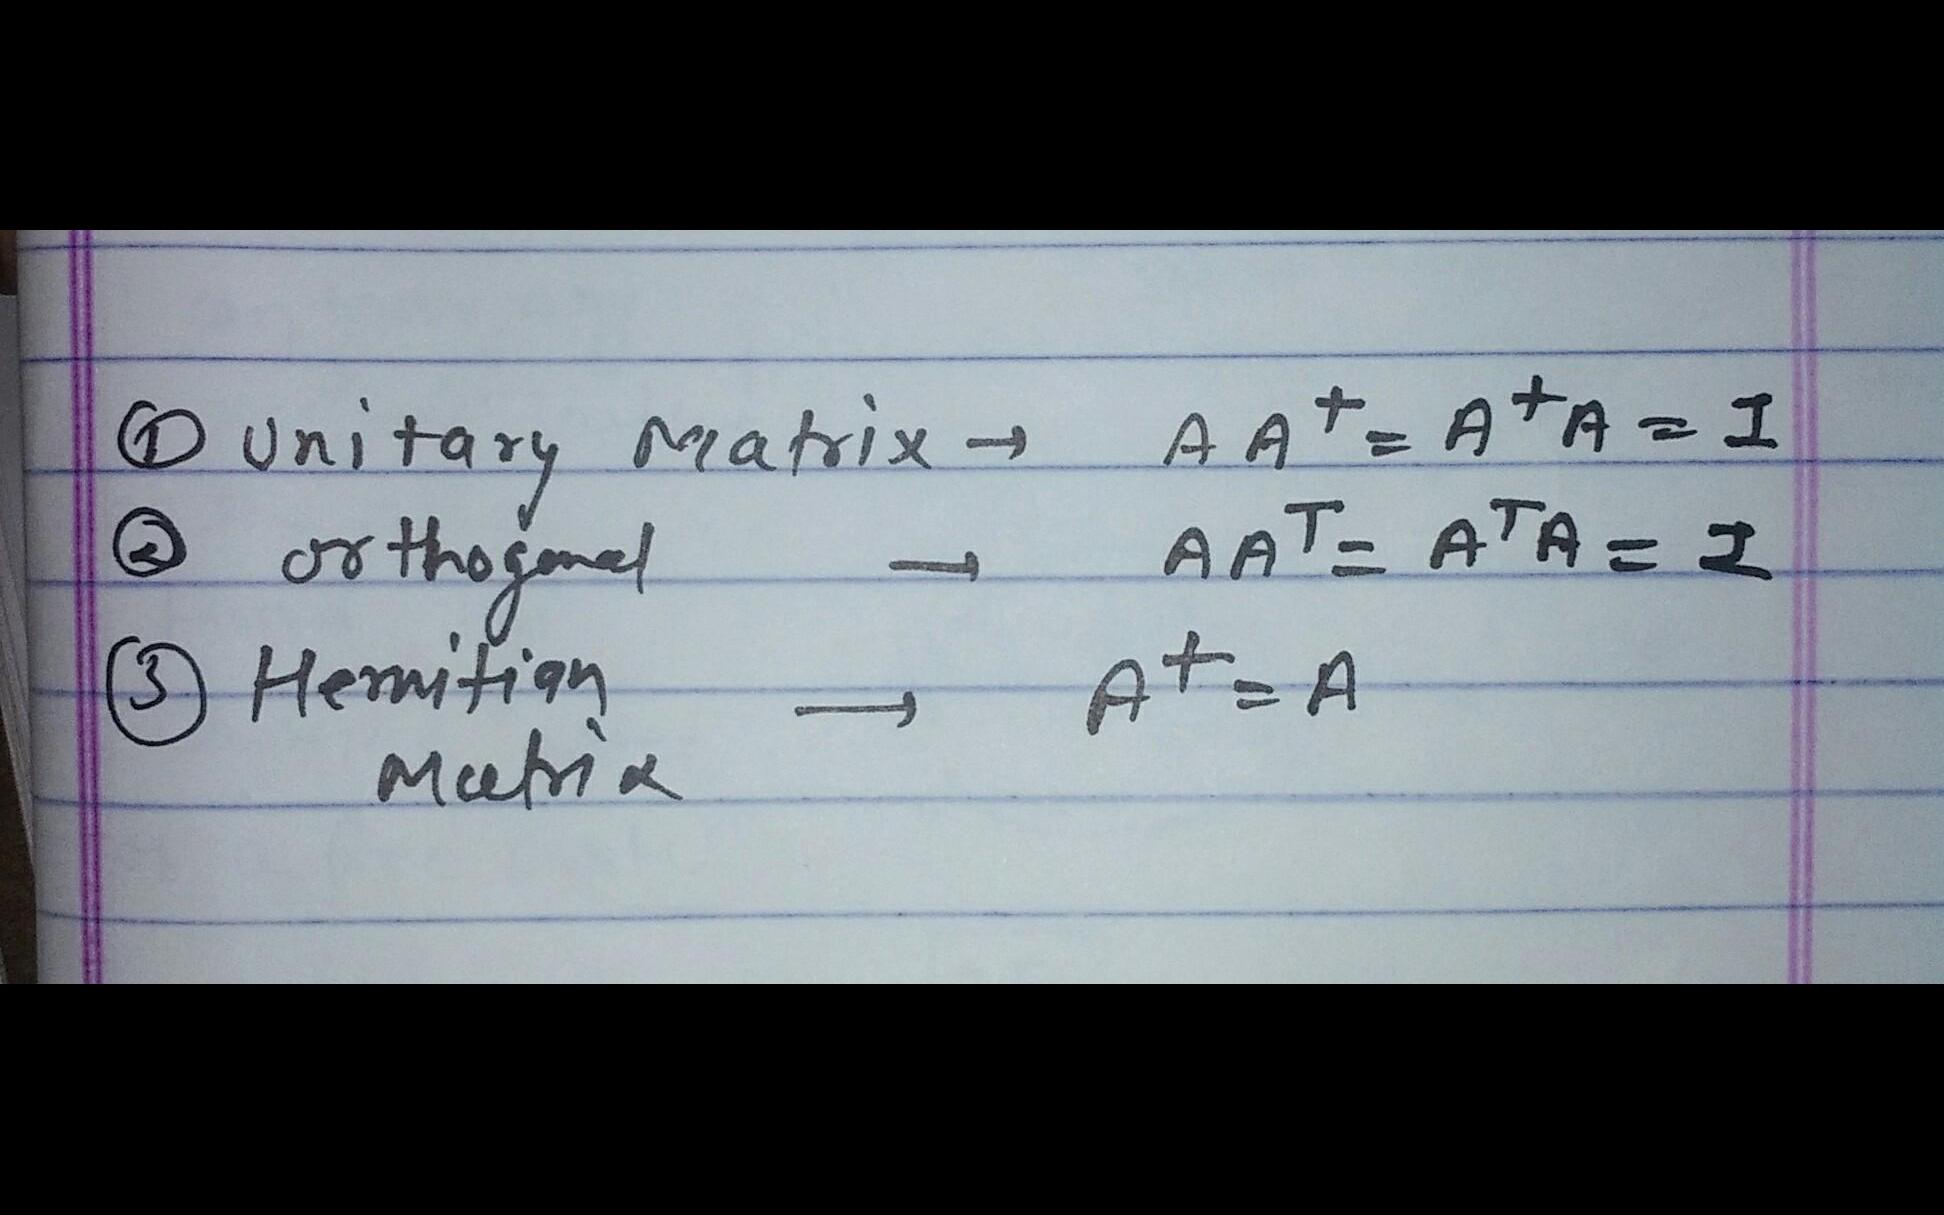 ① Unitary Matrix → A A⁺ = A⁺A = I
② orthogonal → A Aᵀ = AᵀA = I
③ Hermitian → A⁺ = A
Matrix